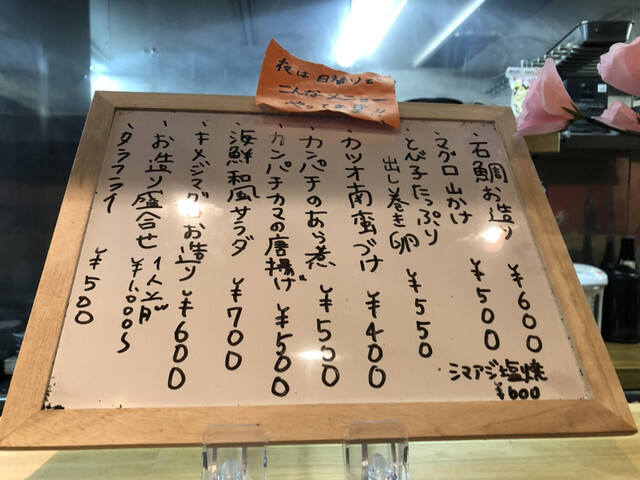 夜は日替りで
こんなメニュー
やってます!!
・石鯛お造り ¥600
・マグロ山かけ ¥500
・とび子たっぷり
出し巻き卵 ¥550
・カツオ南蛮づけ ¥400
・カンパチのあら煮 ¥500
・カンパチカマの唐揚げ ¥500
・海鮮和風サラダ ¥700
・キメジマグロお造り ¥600
・お造り盛合せ 1人前 ¥1,000～
・タラフライ ¥500
シマアジ塩焼
¥600